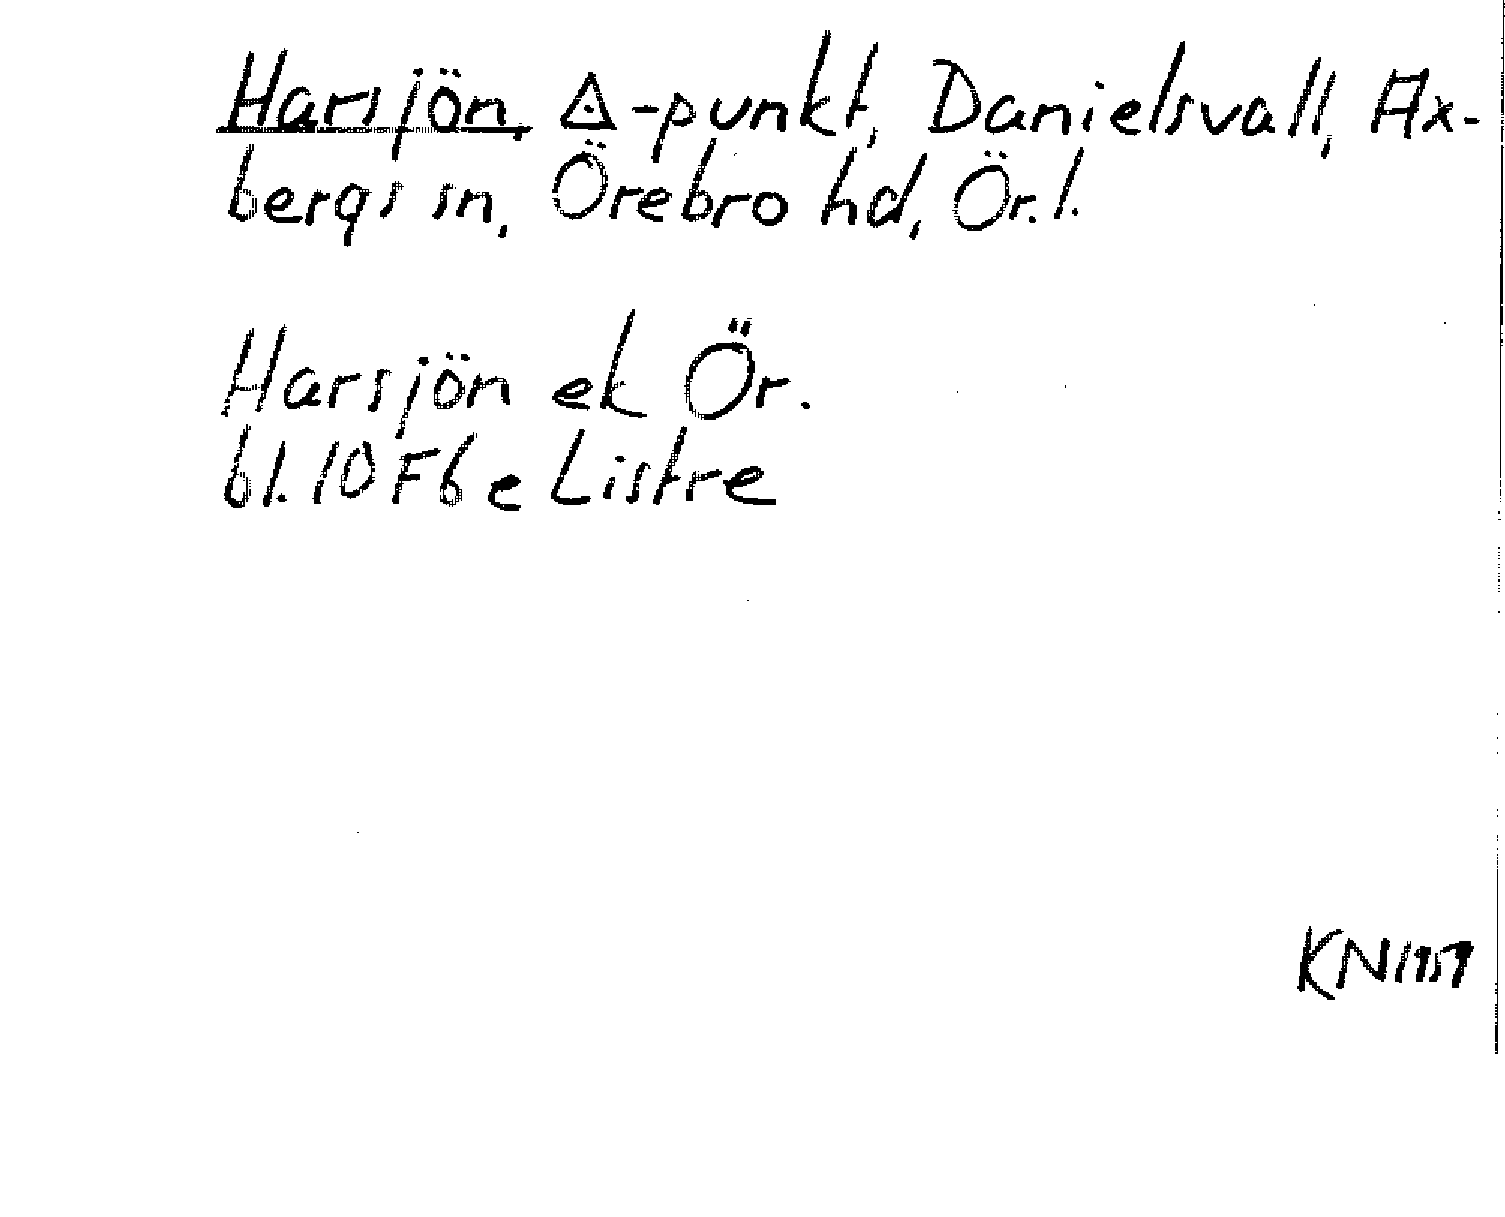 Harsjön, △-punkt, Danielsvall, Ax-
bergs sn, Örebro hd, Ör. l.
Harsjön ek Ör.
bl. 10 F 6 e Listre
KN 1957